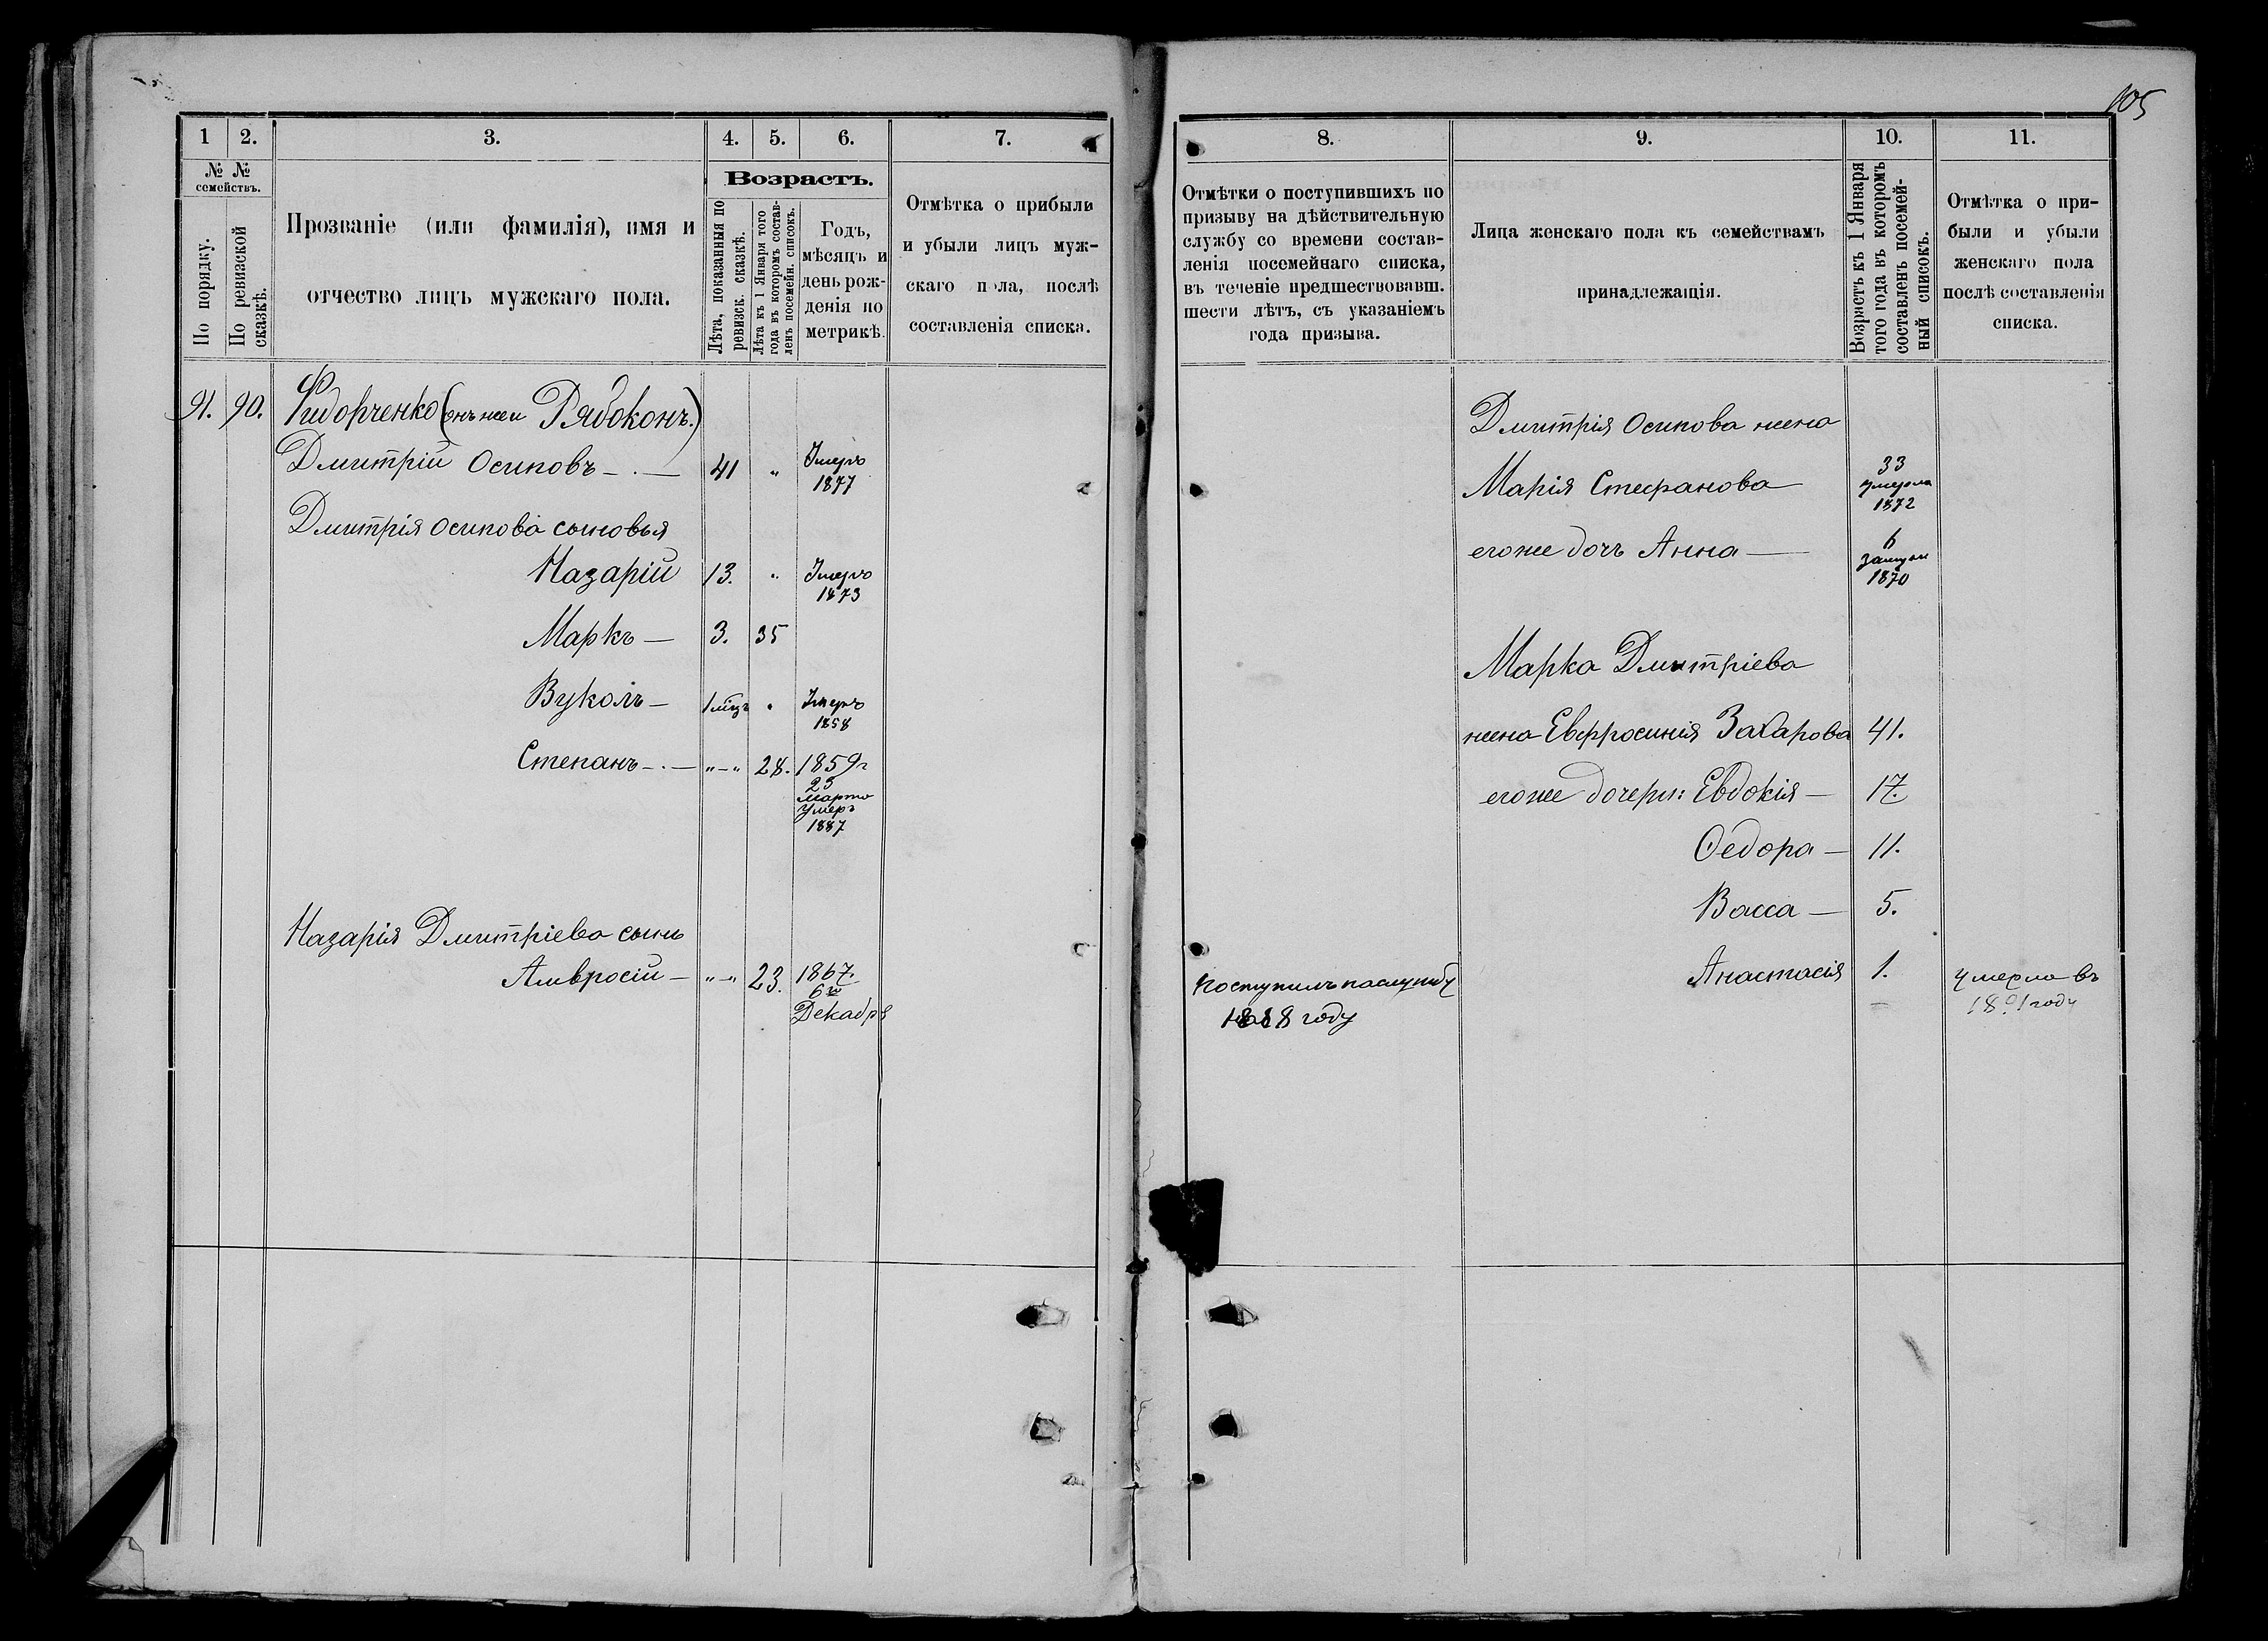 105
1 2. 3. 4. 5. 6. 7.
№ № семействъ.
По порядку.
По ревизской сказкѣ.
Прозваніе (или фамилія), имя и
отчество лицъ мужскаго пола.
Возрастъ.
Лѣта, показанныя по
ревизск. сказкѣ.
Лѣта къ 1 Января того
года въ которомъ состав-
ленъ посемейн. списокъ.
Годъ,
мѣсяцъ и
день рож-
денія по
метрикѣ.
Отмѣтка о прибыли
и убыли лицъ муж-
скаго пола, послѣ
составленія списка.
91. 90. Фидорченко (онъ же и Рябоконъ.)
Дмитрій Осиповъ 41 " Умеръ
1877
Дмитрія Осипова сыновья
Назарій 13. " Умеръ
1873
Маркъ 3. 35
Вуколъ 1 мѣц. " Умеръ
1858
Степанъ "-" 28. 1859 г
23
Марта
Умеръ
1887
Назарія Дмитріева сынъ
Амвросій "-" 23. 1867.
6го
Декабря
8. 9. 10. 11.
Отмѣтки о поступившихъ по
призыву на дѣйствительную
службу со времени состав-
ленія посемейнаго списка,
въ теченіе предшествовавш.
шести лѣтъ, съ указаніемъ
года призыва.
Лица женскаго пола къ семействамъ
принадлежащія.
Возрастъ къ 1 Января
того года въ которомъ
составленъ посемей-
ный списокъ.
Отмѣтка о при-
были и убыли
женскаго пола
послѣ составленія
списка.
Дмитрія Осипова жена
Марія Стефанова 33
умерла
1872
его же дочъ Анна 6
замуж
1870
Марка Дмитріева
жена Евфросинія Захарова 41.
его же дочери: Евдокія 17.
Ѳедора 11.
Васса 5.
Анастасія 1. умерла въ
1891 году
Поступилъ на службу
году